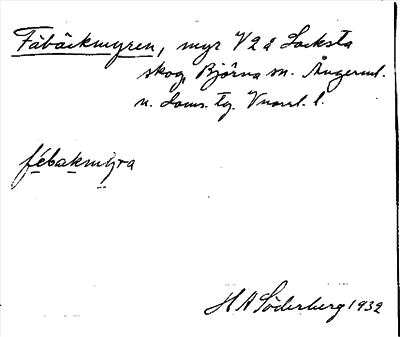 Fäbäckmyren, myr V2 å Locksta
skog, Björna sn. Ångerml.
n. doms. tg. Vnorrl. l.
fébakmýra
H A Söderberg 1932